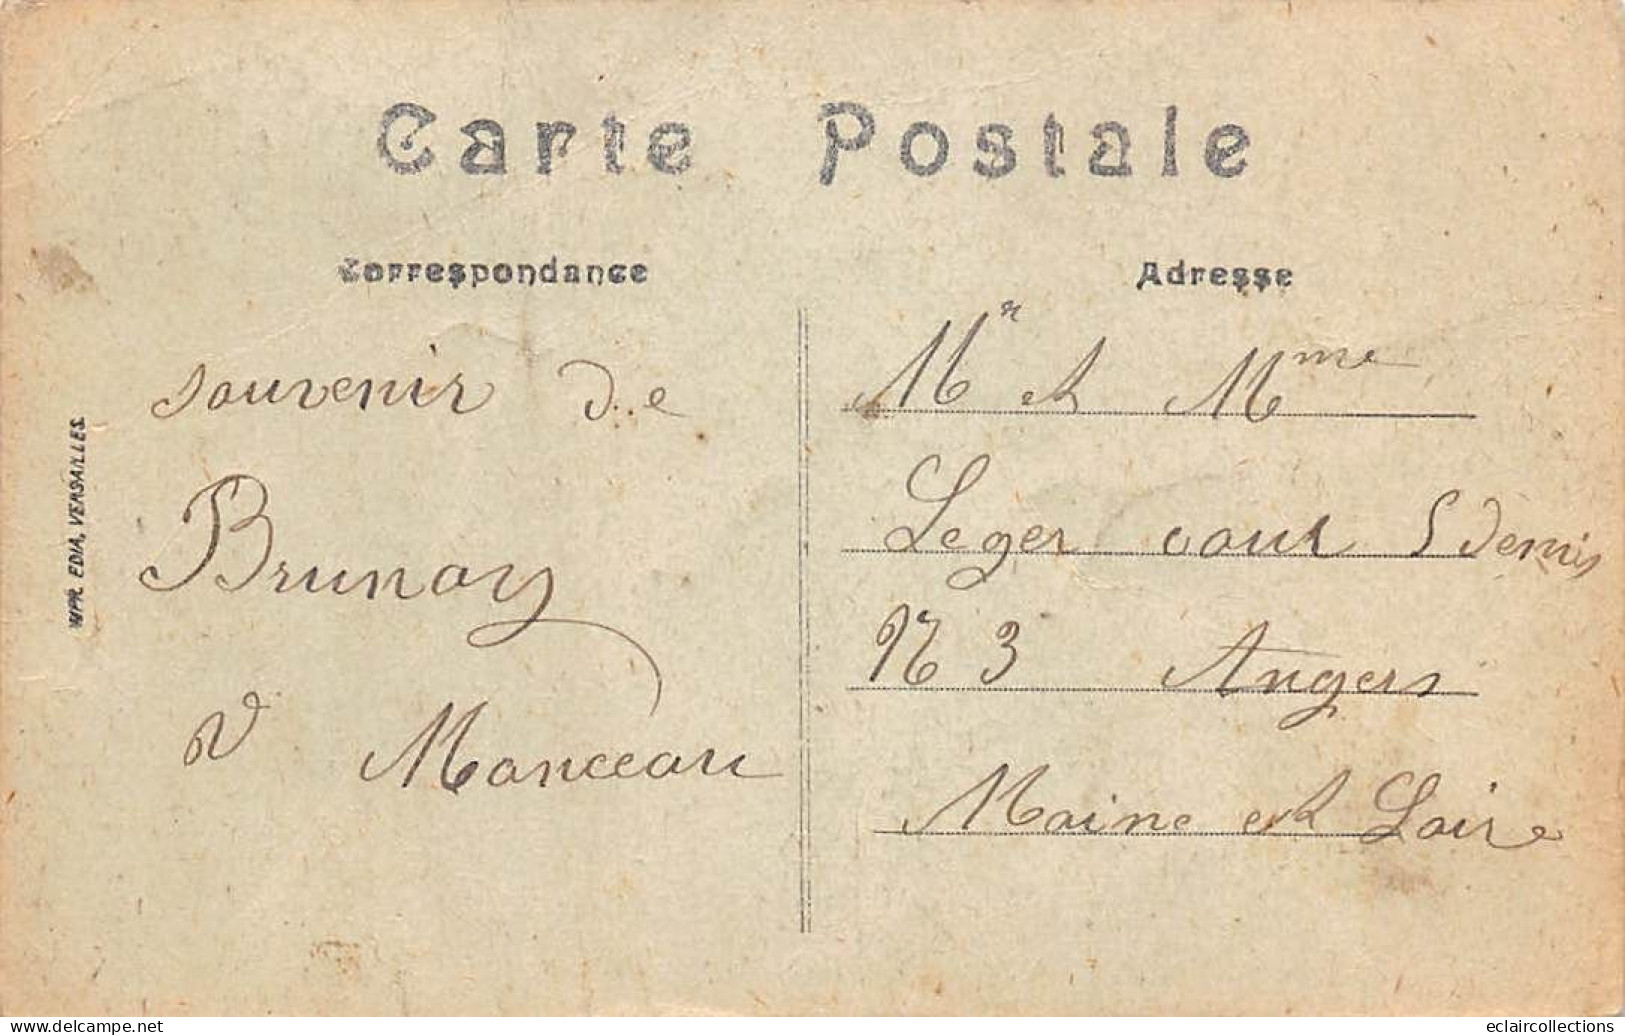 Carte Postale
Correspondance
souvenir de
Brunoy
V Manceau
IMPR. EDIA, VERSAILLES.
Adresse
Mr et Mme
Leger cour S denis
N 3 Angers
Maine et Loire
www.delcampe.net
eclaircollections